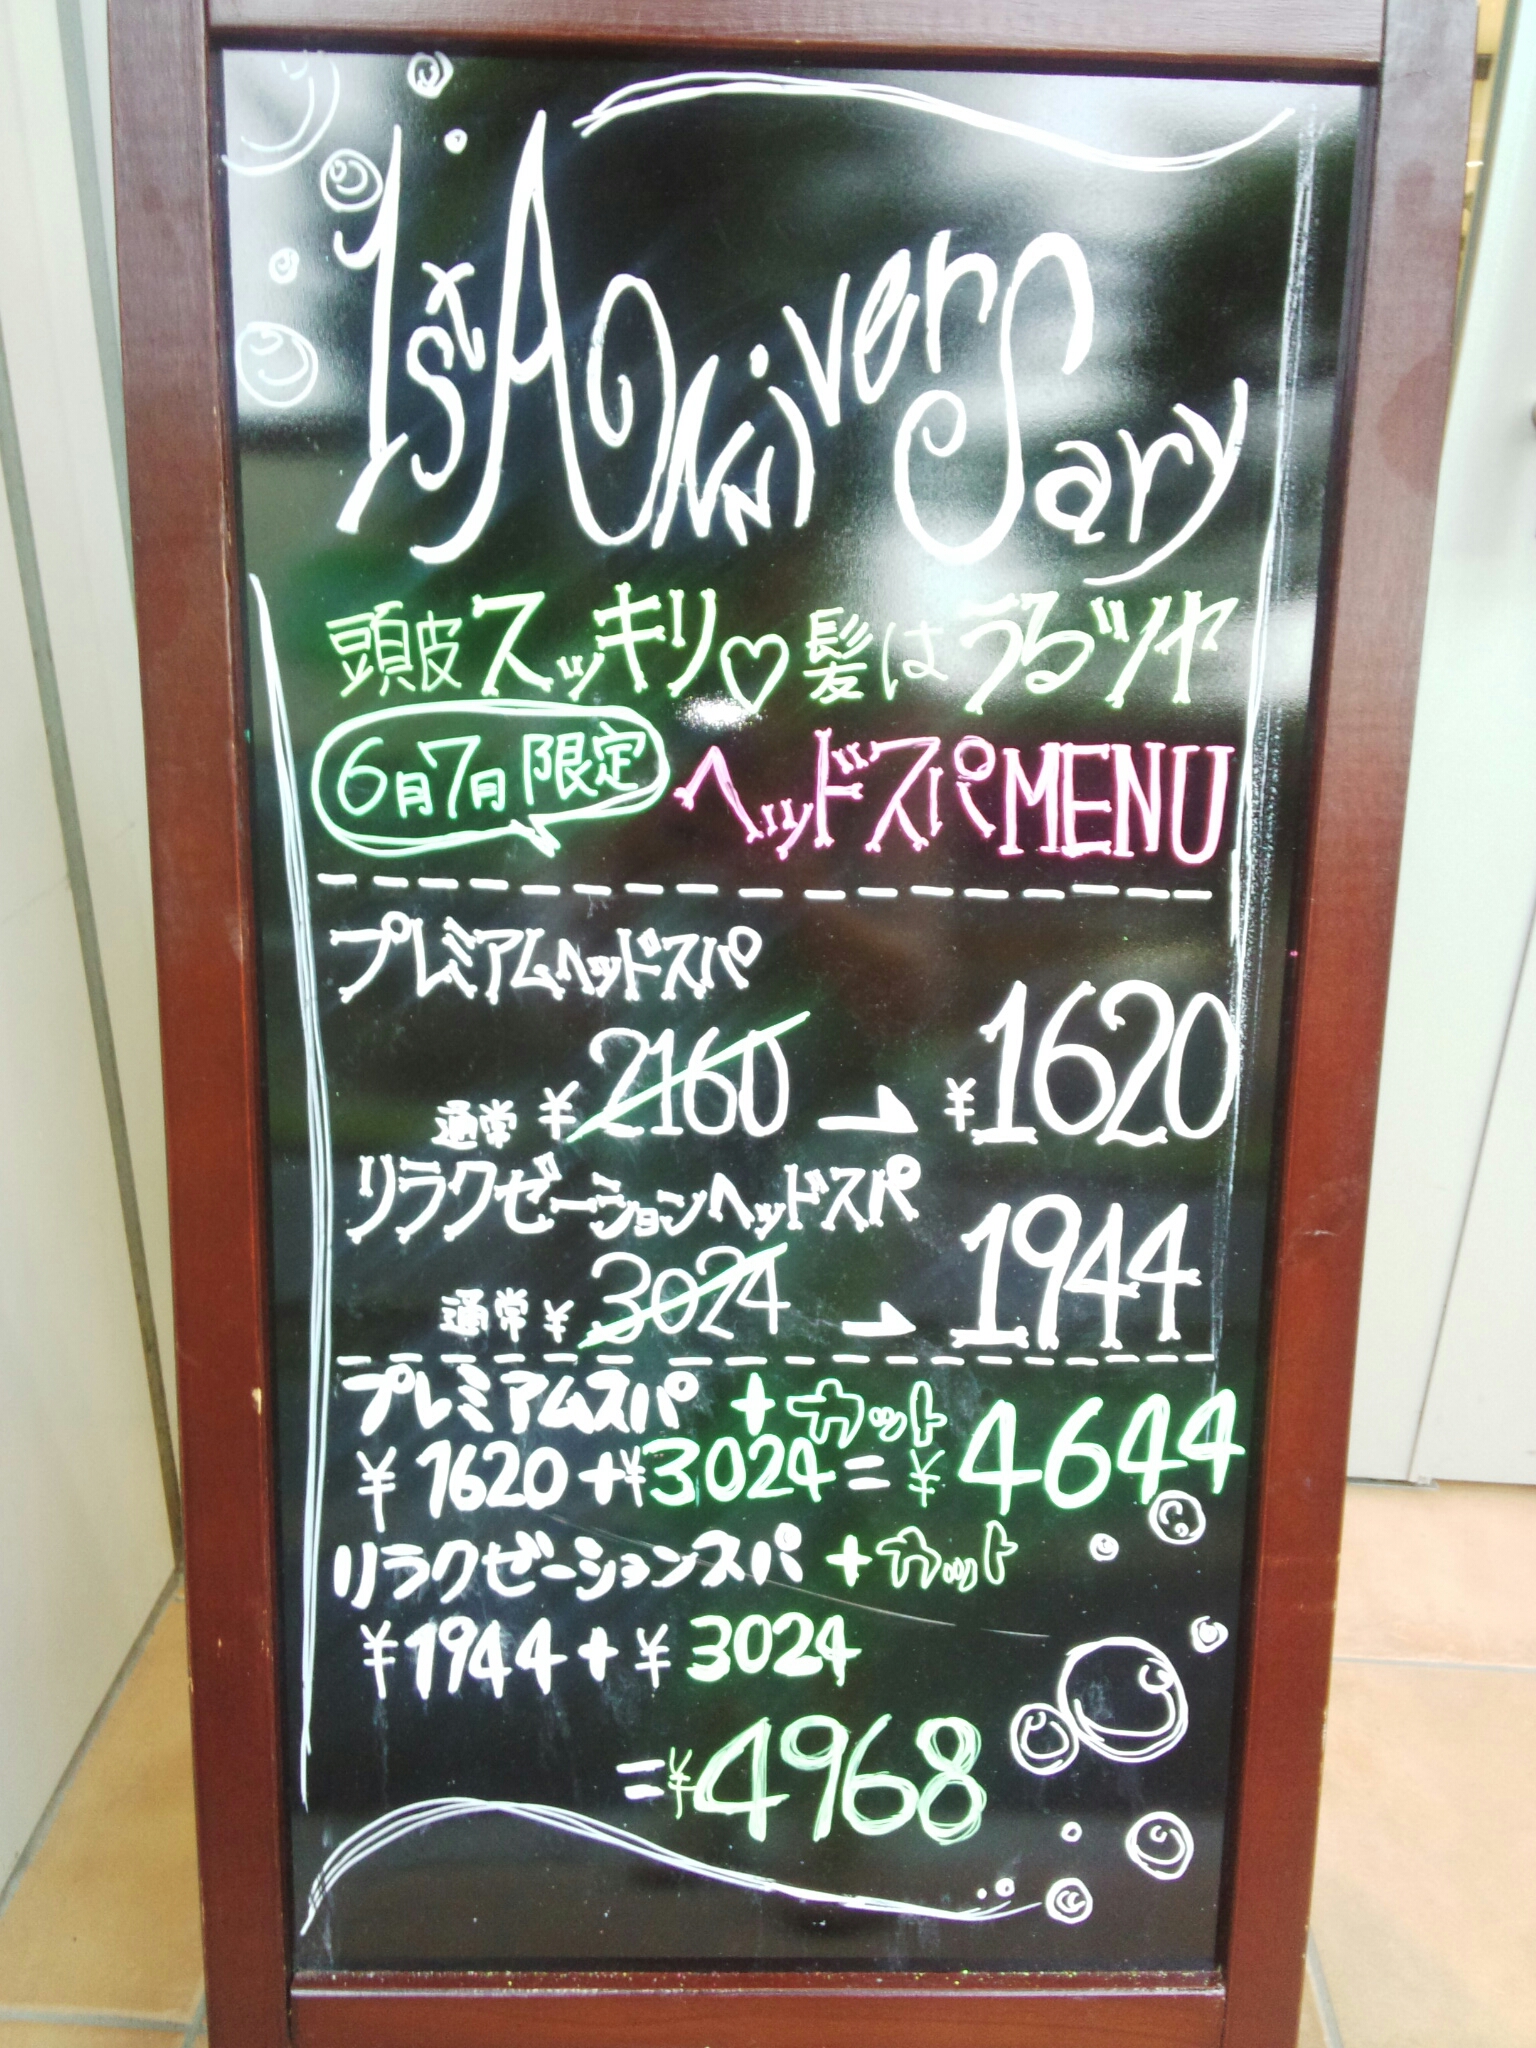 1st Anniversary
頭皮スッキリ♡髪はうるツヤ
6月7月限定 ヘッドスパMENU
プレミアムヘッドスパ
通常 ¥2160 → ¥1620
リラクゼーションヘッドスパ
通常 ¥3024 → 1944
プレミアムスパ + カット
¥1620+¥3024=¥4644
リラクゼーションスパ + カット
¥1944+¥3024
=¥4968